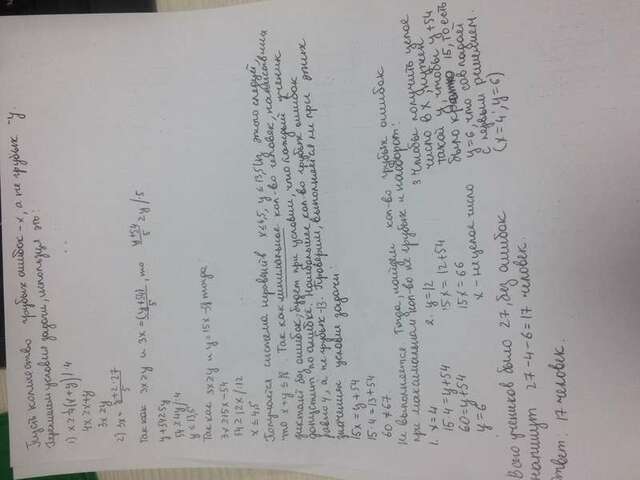 Пусть количество грубых ошибок - x, а не грубых - y.
Перепишем условия задачи, используя это:
1) x ≥ 1/4 (x+y) /·4
4x ≥ x+y
3x ≥ y
2) 3x = (y+2·27)/5
Так как 3x ≥ y и 3x = (y+54)/5, то (y+54)/5 ≥ y /·5
y+54 ≥ 5y
54 ≥ 4y /:4
y ≤ 13,5
Так как 3x ≥ y и y = 15x - 54 тогда
3x ≥ 15x - 54
54 ≥ 12x /:12
x ≤ 4,5
Получается система неравенств x ≤ 4,5, y ≤ 13,5 Из этого следует,
что x + y ≤ 18. Так как кол-во человек, написавших
диктант без ошибок, будет при условии, что каждый ученик
допустит по ошибке. Наибольшее кол-во грубых ошибок
равно 4, а не грубых - 13. Проверим, выполняется ли при этих
значениях условие задачи:
15x = y + 54
15·4 = 13 + 54
60 ≠ 67.
Не выполняется. Тогда, найдем кол-во грубых ошибок
при максимальном кол-во не грубых и наоборот:
1. x = 4
15·4 = y+54
60 = y+54
y = 6
2. y = 12
15x = 12 + 54
15x = 66
x - не целое число
3. Чтобы получить целое
число в x, нужен
такой y, чтобы y + 54
было кратно 15, то есть
y = 6, что совпадает
с первым решением.
(x = 4; y = 6)
Всего учеников было 27, без ошибок
напишут 27 - 4 - 6 = 17 человек.
Ответ: 17 человек.